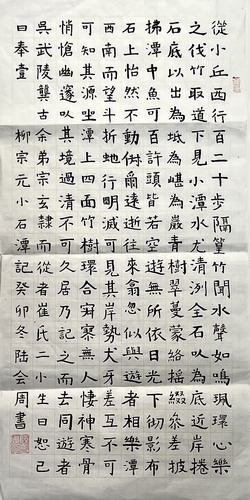 從小丘西行百二十步隔篁竹聞水聲如鳴珮環心樂
之伐竹取道下見小潭水尤清洌全石以為底近岸捲
石底以出為坻為嵁為巖青樹翠蔓蒙絡搖綴參差披
拂潭中魚可百許頭皆若空遊無所依日光下徹影布
石上怡然不動俶爾遠逝往來翕忽似與遊者相樂潭
西南而望斗折蛇行明滅可見其岸勢犬牙差互不
可知其源坐潭上四面竹樹環合寂寥無人悽神寒骨
悄愴幽邃以其境過清不可久居乃記之而去同遊者
吳武陵龔古余弟宗玄隸而從者崔氏二小生曰恕己
曰奉壹 柳宗元小石潭記癸卯冬陸会周書